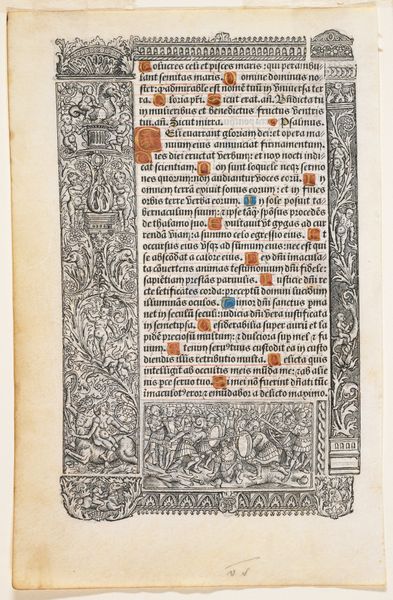 Volucres celi et pisces maris: qui perambu
lant semitas maris. Domine dominus no
ster: q̃ admirabile est nomẽ tuũ in vniuersa ter
ra. Gloria pr̃i. Sicut erat. añ. Bñdicta tu
in mulieribus et benedictus fructus ventris
tui. añ. Sicut mirra. Psalmus.
Celi enarrant gloriam dei: et opera ma
nuum eius annunciat firmamentum.
Dies diei eructat verbum: et nox nocti indi
cat scientiam. Non sunt loquele neqz sermo
nes quorum non audiantur voces eorũ. In
omnem terrã exiuit sonus eorum: et in fines
orbis terre verba eorum. In sole posuit ta
bernaculum suum: et ipse tãqz spõsus procedẽs
de thalamo suo. Exultauit vt gygas ad cur
rendã viam: a summo celo egressio eius. Et
occursus eius vsqz ad sũmum eius: nec est qui
se abscõdat a calore eius. Lex dñi immacula
ta cõuertens animas testimonium dñi fidele:
sapiẽtiam prestãs paruulis. Iusticie dñi re
cte letificãtes corda: preceptũ domini lucidum
illuminãs oculos. Timor dñi sanctus pma
net in seculũ seculi: iudicia dñi vera iustificata
in semetipsa. Desiderabilia super aurũ et la
pidẽ preciosũ multum: et dulciora sup mel et fa
uum. Etenim seruus tuus custodit ea in custo
diendis illis retributio multa. Delicta quis
intelligit ab occultis meis mũda me: et ab alie
nis parce seruo tuo. Si mei nõ fuerint dñati tũc
immaculatus ero: et emũdabor a delicto maximo.